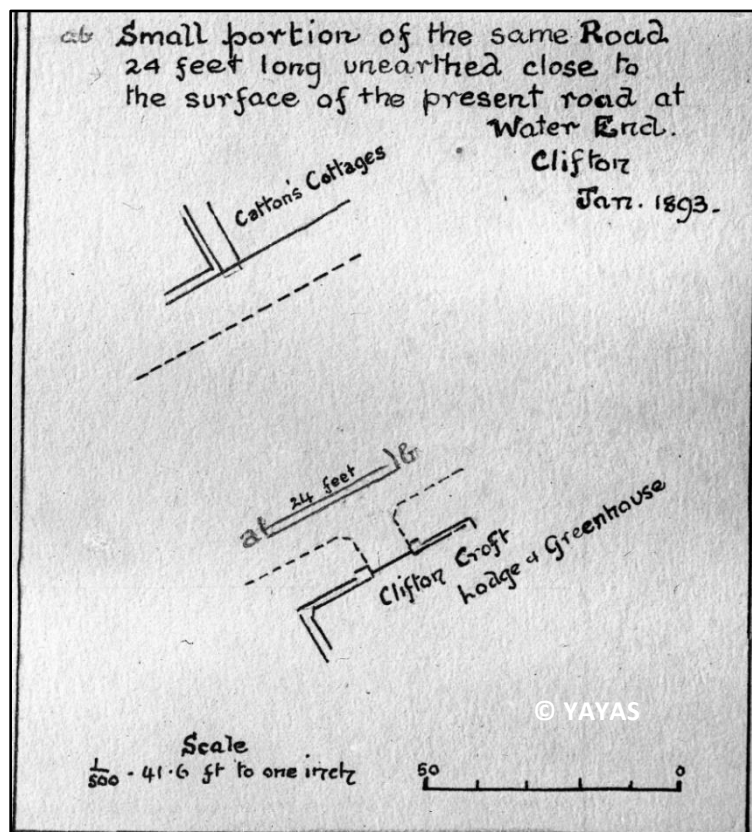 ab Small portion of the same Road
24 feet long unearthed close to
the surface of the present road at
Water End.
Clifton
Jan. 1893.
Catton's Cottages
24 feet
a
b
Clifton Croft
Lodge & Greenhouse
© YAYAS
Scale
1/500 - 41.6 ft to one inch
50 0